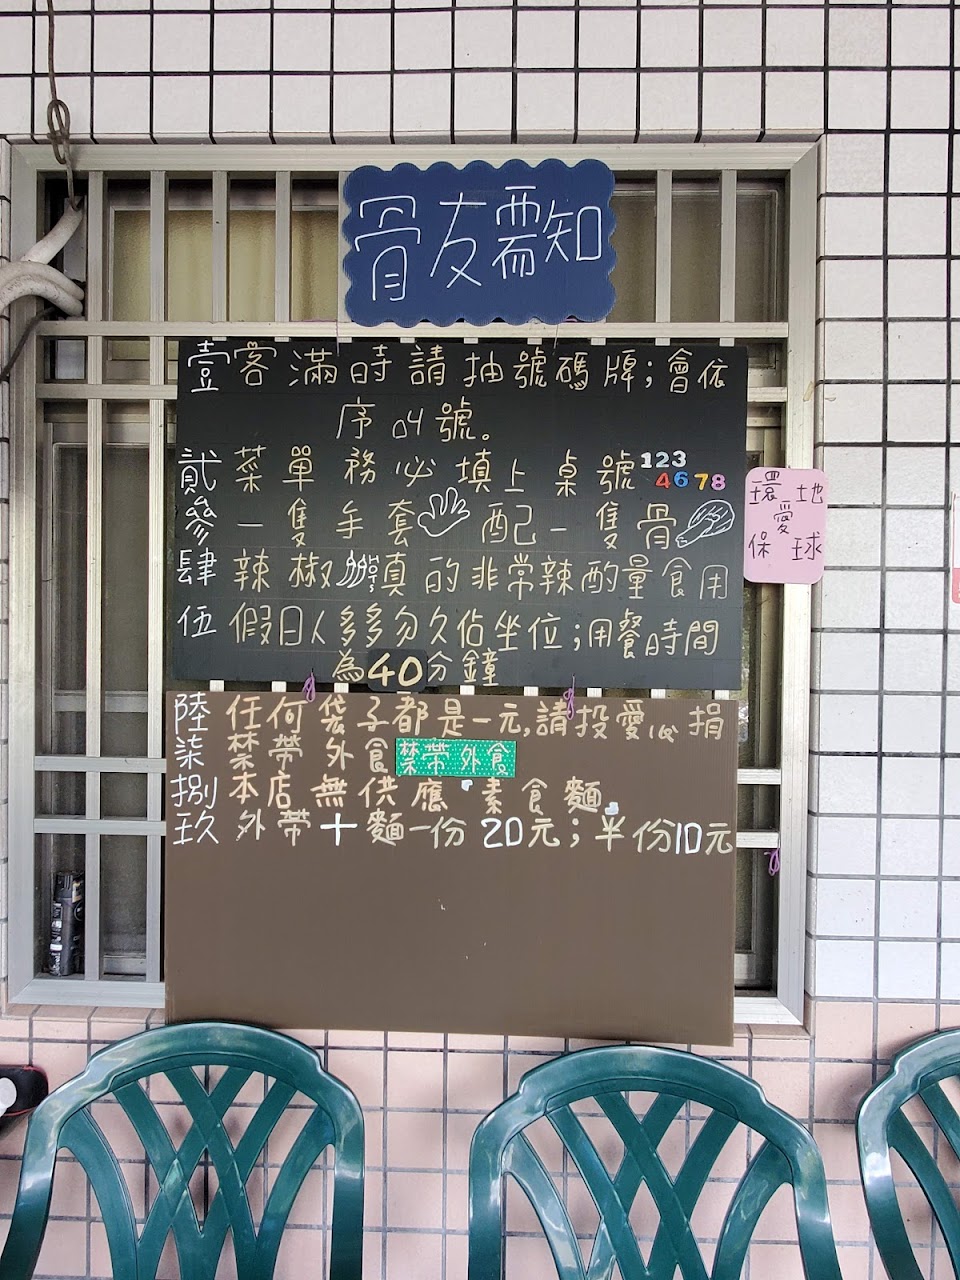 骨友需知
壹客滿時請抽號碼牌；會依
序叫號。
貳菜單務必填上桌號123
4678
參一隻手套配一隻骨
肆辣椒真的非常辣酌量食用
伍假日人多多勿久佔坐位；用餐時間
為40分鐘
陸任何袋子都是一元,請投愛心捐
柒禁帶外食禁帶外食
捌本店無供應素食麵
玖外帶十麵一份20元；半份10元
環地
愛
保球